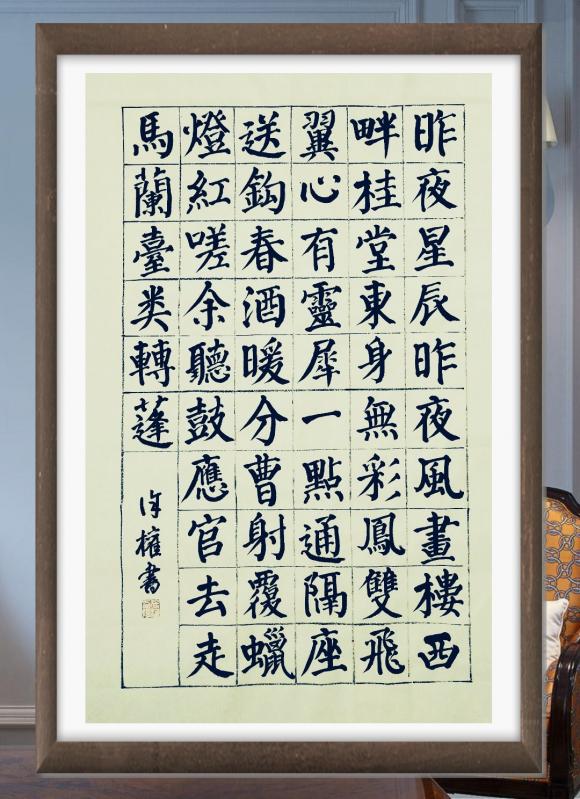 昨夜星辰昨夜風畫樓西
畔桂堂東身無彩鳳雙飛
翼心有靈犀一點通隔座
送鉤春酒暖分曹射覆蠟
燈紅嗟余聽鼓應官去走
馬蘭臺类轉蓬
權書